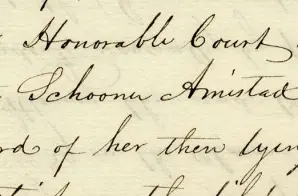 Honorable Court
Schooner Amistad
rd of her then lying